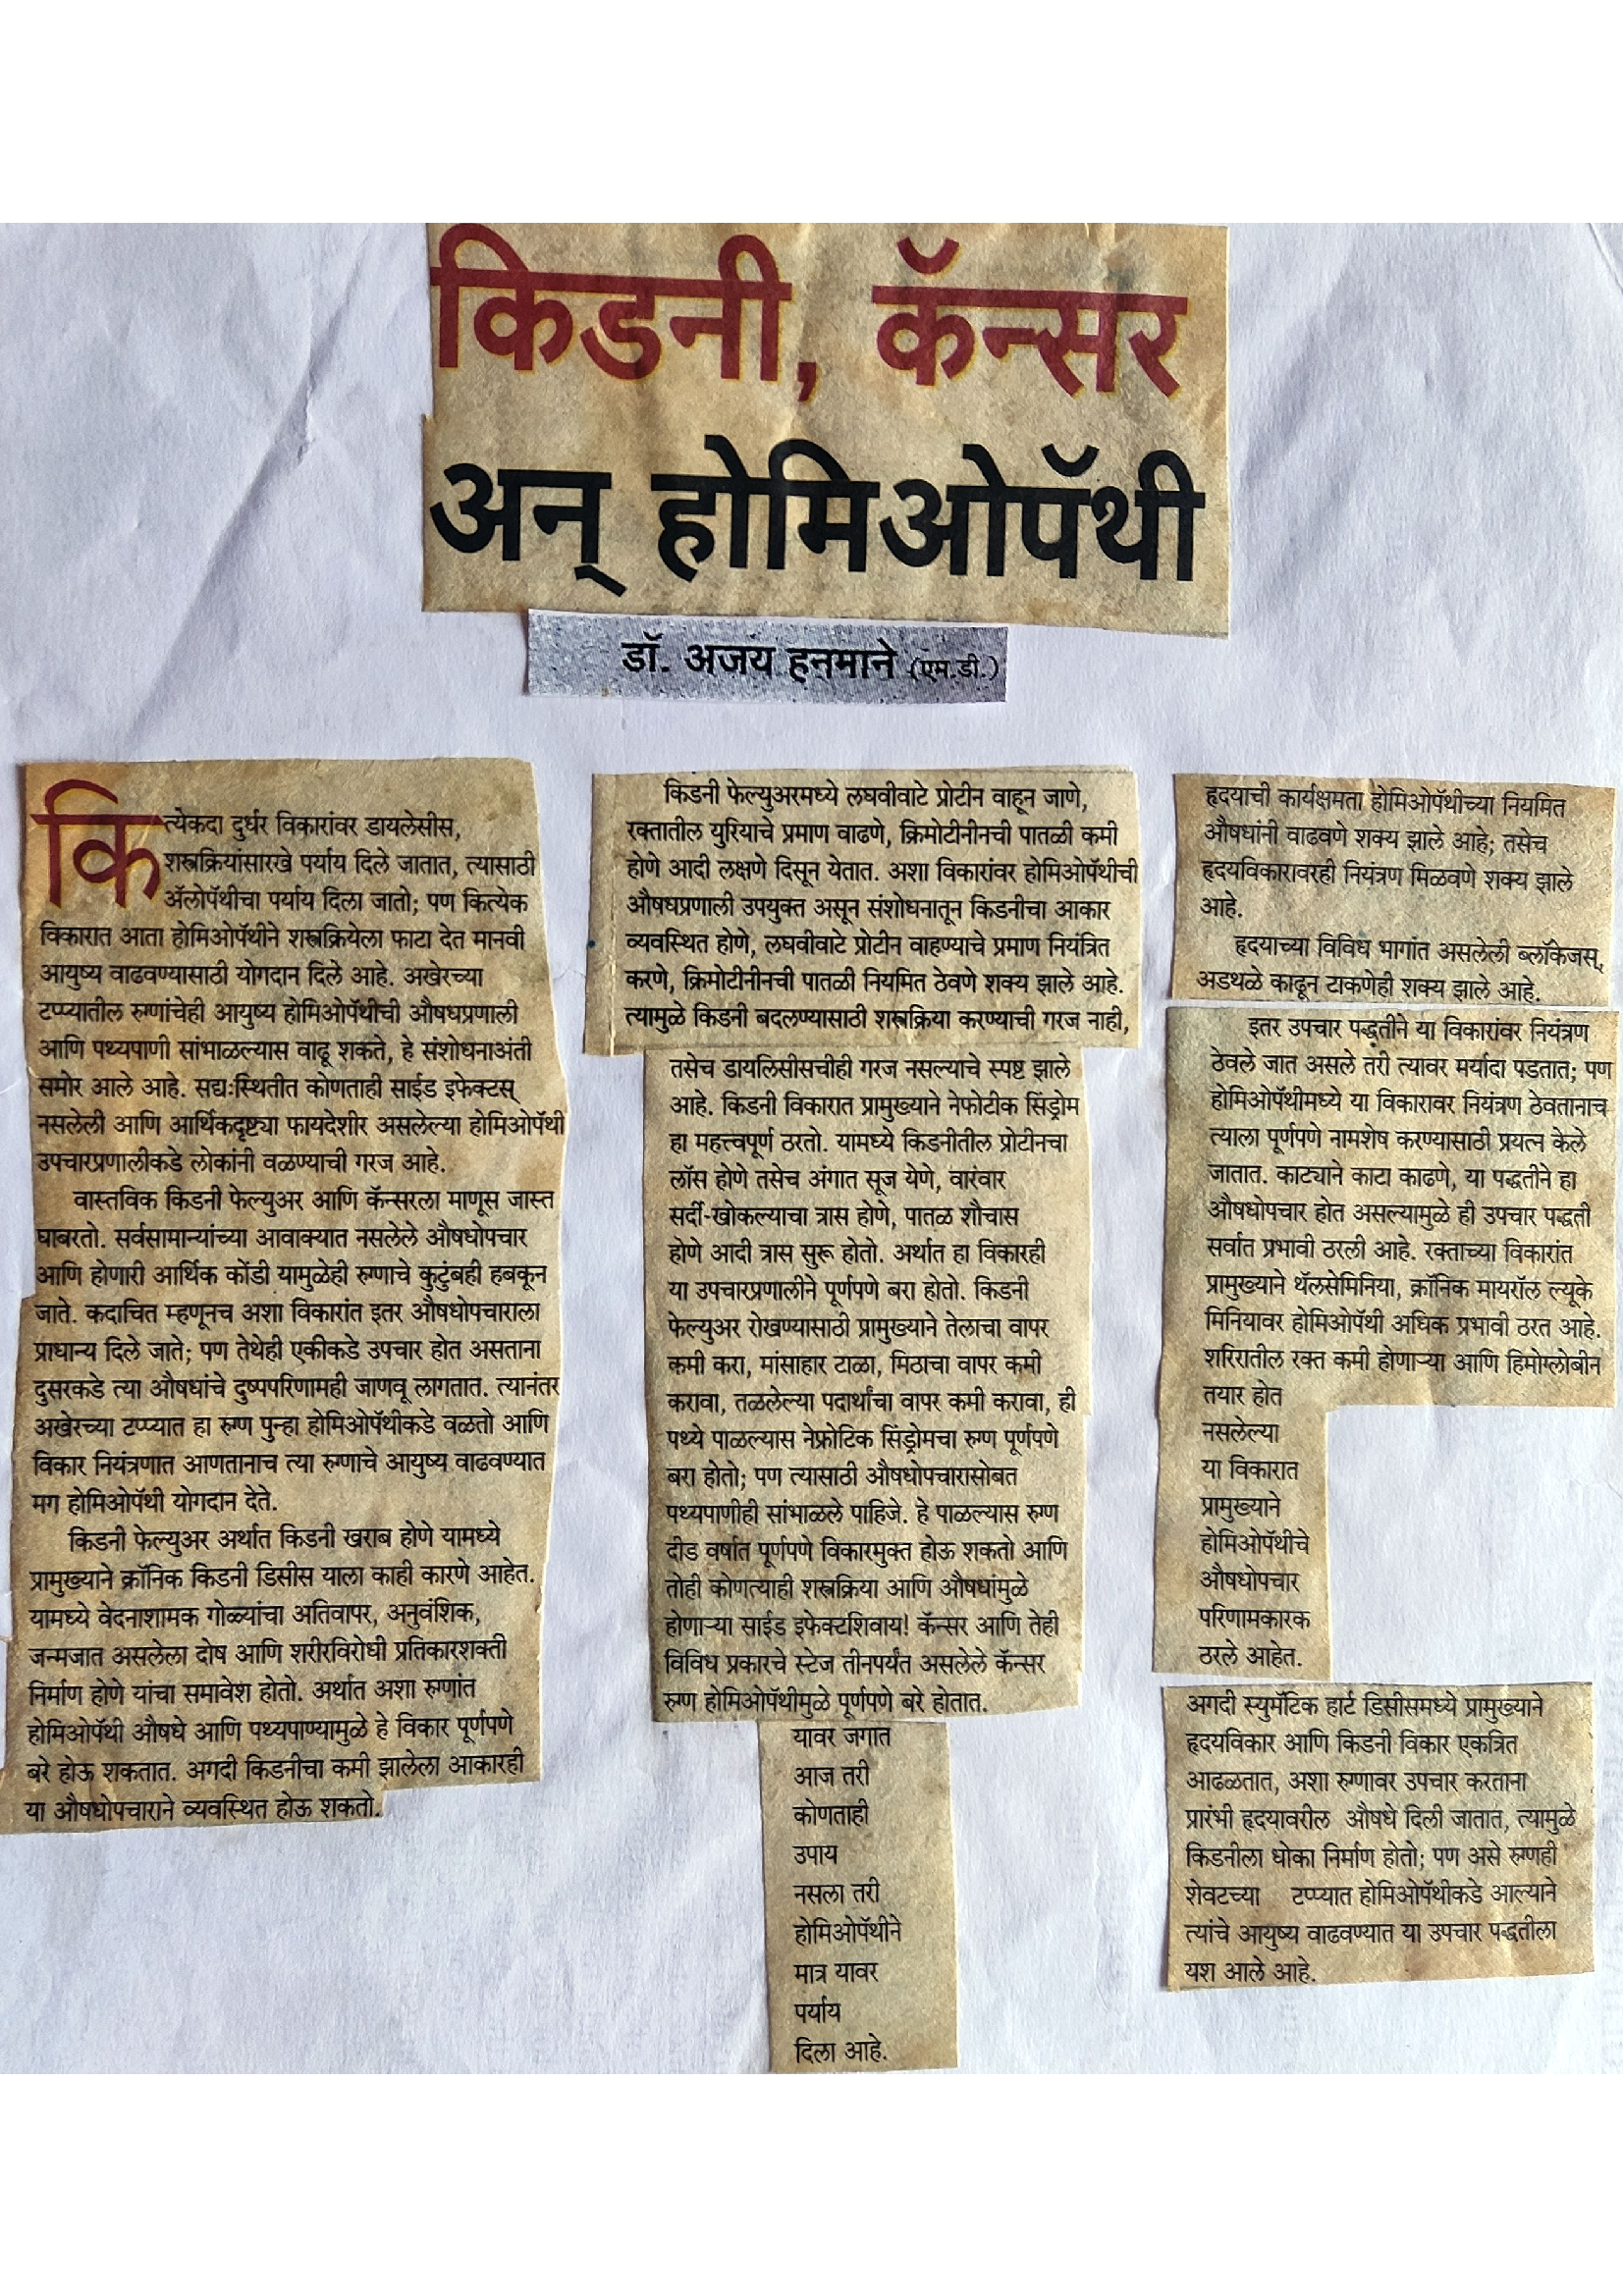 किडनी, कॅन्सर
अन् होमिओपॅथी
डॉ. अजय हनमाने (एम.डी.)
कित्येकदा दुर्धर विकारांवर डायलेसीस,
शस्त्रक्रियांसारखे पर्याय दिले जातात, त्यासाठी
ॲलोपॅथीचा पर्याय दिला जातो; पण कित्येक
विकारात आता होमिओपॅथीने शस्त्रक्रियेला फाटा देत मानवी
आयुष्य वाढवण्यासाठी योगदान दिले आहे. अखेरच्या
टप्प्यातील रुग्णांचेही आयुष्य होमिओपॅथीची औषधप्रणाली
आणि पथ्यपाणी सांभाळल्यास वाढू शकते, हे संशोधनाअंती
समोर आले आहे. सद्यःस्थितीत कोणताही साईड इफेक्टस्
नसलेली आणि आर्थिकदृष्ट्या फायदेशीर असलेल्या होमिओपॅथी
उपचारप्रणालीकडे लोकांनी वळण्याची गरज आहे.
वास्तविक किडनी फेल्युअर आणि कॅन्सरला माणूस जास्त
घाबरतो. सर्वसामान्यांच्या आवाक्यात नसलेले औषधोपचार
आणि होणारी आर्थिक कोंडी यामुळेही रुग्णाचे कुटुंबही हबकून
जाते. कदाचित म्हणूनच अशा विकारांत इतर औषधोपचाराला
प्राधान्य दिले जाते; पण तेथेही एकीकडे उपचार होत असताना
दुसरकडे त्या औषधांचे दुष्पपरिणामही जाणवू लागतात. त्यानंतर
अखेरच्या टप्प्यात हा रुग्ण पुन्हा होमिओपॅथीकडे वळतो आणि
विकार नियंत्रणात आणतानाच त्या रुग्णाचे आयुष्य वाढवण्यात
मग होमिओपॅथी योगदान देते.
किडनी फेल्युअर अर्थात किडनी खराब होणे यामध्ये
प्रामुख्याने क्रॉनिक किडनी डिसीस याला काही कारणे आहेत.
यामध्ये वेदनाशामक गोळ्यांचा अतिवापर, अनुवंशिक,
जन्मजात असलेला दोष आणि शरीरविरोधी प्रतिकारशक्ती
निर्माण होणे यांचा समावेश होतो. अर्थात अशा रुग्णांत
होमिओपॅथी औषधे आणि पथ्यपाण्यामुळे हे विकार पूर्णपणे
बरे होऊ शकतात. अगदी किडनीचा कमी झालेला आकारही
या औषधोपचाराने व्यवस्थित होऊ शकतो.
किडनी फेल्युअरमध्ये लघवीवाटे प्रोटीन वाहून जाणे,
रक्तातील युरियाचे प्रमाण वाढणे, क्रिमोटीनीनची पातळी कमी
होणे आदी लक्षणे दिसून येतात. अशा विकारांवर होमिओपॅथीची
औषधप्रणाली उपयुक्त असून संशोधनातून किडनीचा आकार
व्यवस्थित होणे, लघवीवाटे प्रोटीन वाहण्याचे प्रमाण नियंत्रित
करणे, क्रिमोटीनीनची पातळी नियमित ठेवणे शक्य झाले आहे.
त्यामुळे किडनी बदलण्यासाठी शस्त्रक्रिया करण्याची गरज नाही,
तसेच डायलिसीसचीही गरज नसल्याचे स्पष्ट झाले
आहे. किडनी विकारात प्रामुख्याने नेफोटीक सिंड्रोम
हा महत्त्वपूर्ण ठरतो. यामध्ये किडनीतील प्रोटीनचा
लॉस होणे तसेच अंगात सूज येणे, वारंवार
सर्दी-खोकल्याचा त्रास होणे, पातळ शौचास
होणे आदी त्रास सुरू होतो. अर्थात हा विकारही
या उपचारप्रणालीने पूर्णपणे बरा होतो. किडनी
फेल्युअर रोखण्यासाठी प्रामुख्याने तेलाचा वापर
कमी करा, मांसाहार टाळा, मिठाचा वापर कमी
करावा, तळलेल्या पदार्थांचा वापर कमी करावा, ही
पथ्ये पाळल्यास नेफ्रोटिक सिंड्रोमचा रुग्ण पूर्णपणे
बरा होतो; पण त्यासाठी औषधोपचारासोबत
पथ्यपाणीही सांभाळले पाहिजे. हे पाळल्यास रुग्ण
दीड वर्षात पूर्णपणे विकारमुक्त होऊ शकतो आणि
तोही कोणत्याही शस्त्रक्रिया आणि औषधांमुळे
होणाऱ्या साईड इफेक्टशिवाय! कॅन्सर आणि तेही
विविध प्रकारचे स्टेज तीनपर्यंत असलेले कॅन्सर
रुग्ण होमिओपॅथीमुळे पूर्णपणे बरे होतात.
यावर जगात
आज तरी
कोणताही
उपाय
नसला तरी
होमिओपॅथीने
मात्र यावर
पर्याय
दिला आहे.
हृदयाची कार्यक्षमता होमिओपॅथीच्या नियमित
औषधांनी वाढवणे शक्य झाले आहे; तसेच
हृदयविकारावरही नियंत्रण मिळवणे शक्य झाले
आहे.
हृदयाच्या विविध भागांत असलेली ब्लॉकेजस्,
अडथळे काढून टाकणेही शक्य झाले आहे.
इतर उपचार पद्धतीने या विकारांवर नियंत्रण
ठेवले जात असले तरी त्यावर मर्यादा पडतात; पण
होमिओपॅथीमध्ये या विकारावर नियंत्रण ठेवतानाच
त्याला पूर्णपणे नामशेष करण्यासाठी प्रयत्न केले
जातात. काट्याने काटा काढणे, या पद्धतीने हा
औषधोपचार होत असल्यामुळे ही उपचार पद्धती
सर्वात प्रभावी ठरली आहे. रक्ताच्या विकारांत
प्रामुख्याने थॅलसेमिनिया, क्रॉनिक मायरॉल ल्यूके
मिनियावर होमिओपॅथी अधिक प्रभावी ठरत आहे.
शरिरातील रक्त कमी होणाऱ्या आणि हिमोग्लोबीन
तयार होत
नसलेल्या
या विकारात
प्रामुख्याने
होमिओपॅथीचे
औषधोपचार
परिणामकारक
ठरले आहेत.
अगदी स्युमॅटिक हार्ट डिसीसमध्ये प्रामुख्याने
हृदयविकार आणि किडनी विकार एकत्रित
आढळतात, अशा रुग्णावर उपचार करताना
प्रारंभी हृदयावरील औषधे दिली जातात, त्यामुळे
किडनीला धोका निर्माण होतो; पण असे रुग्णही
शेवटच्या टप्प्यात होमिओपॅथीकडे आल्याने
त्यांचे आयुष्य वाढवण्यात या उपचार पद्धतीला
यश आले आहे.